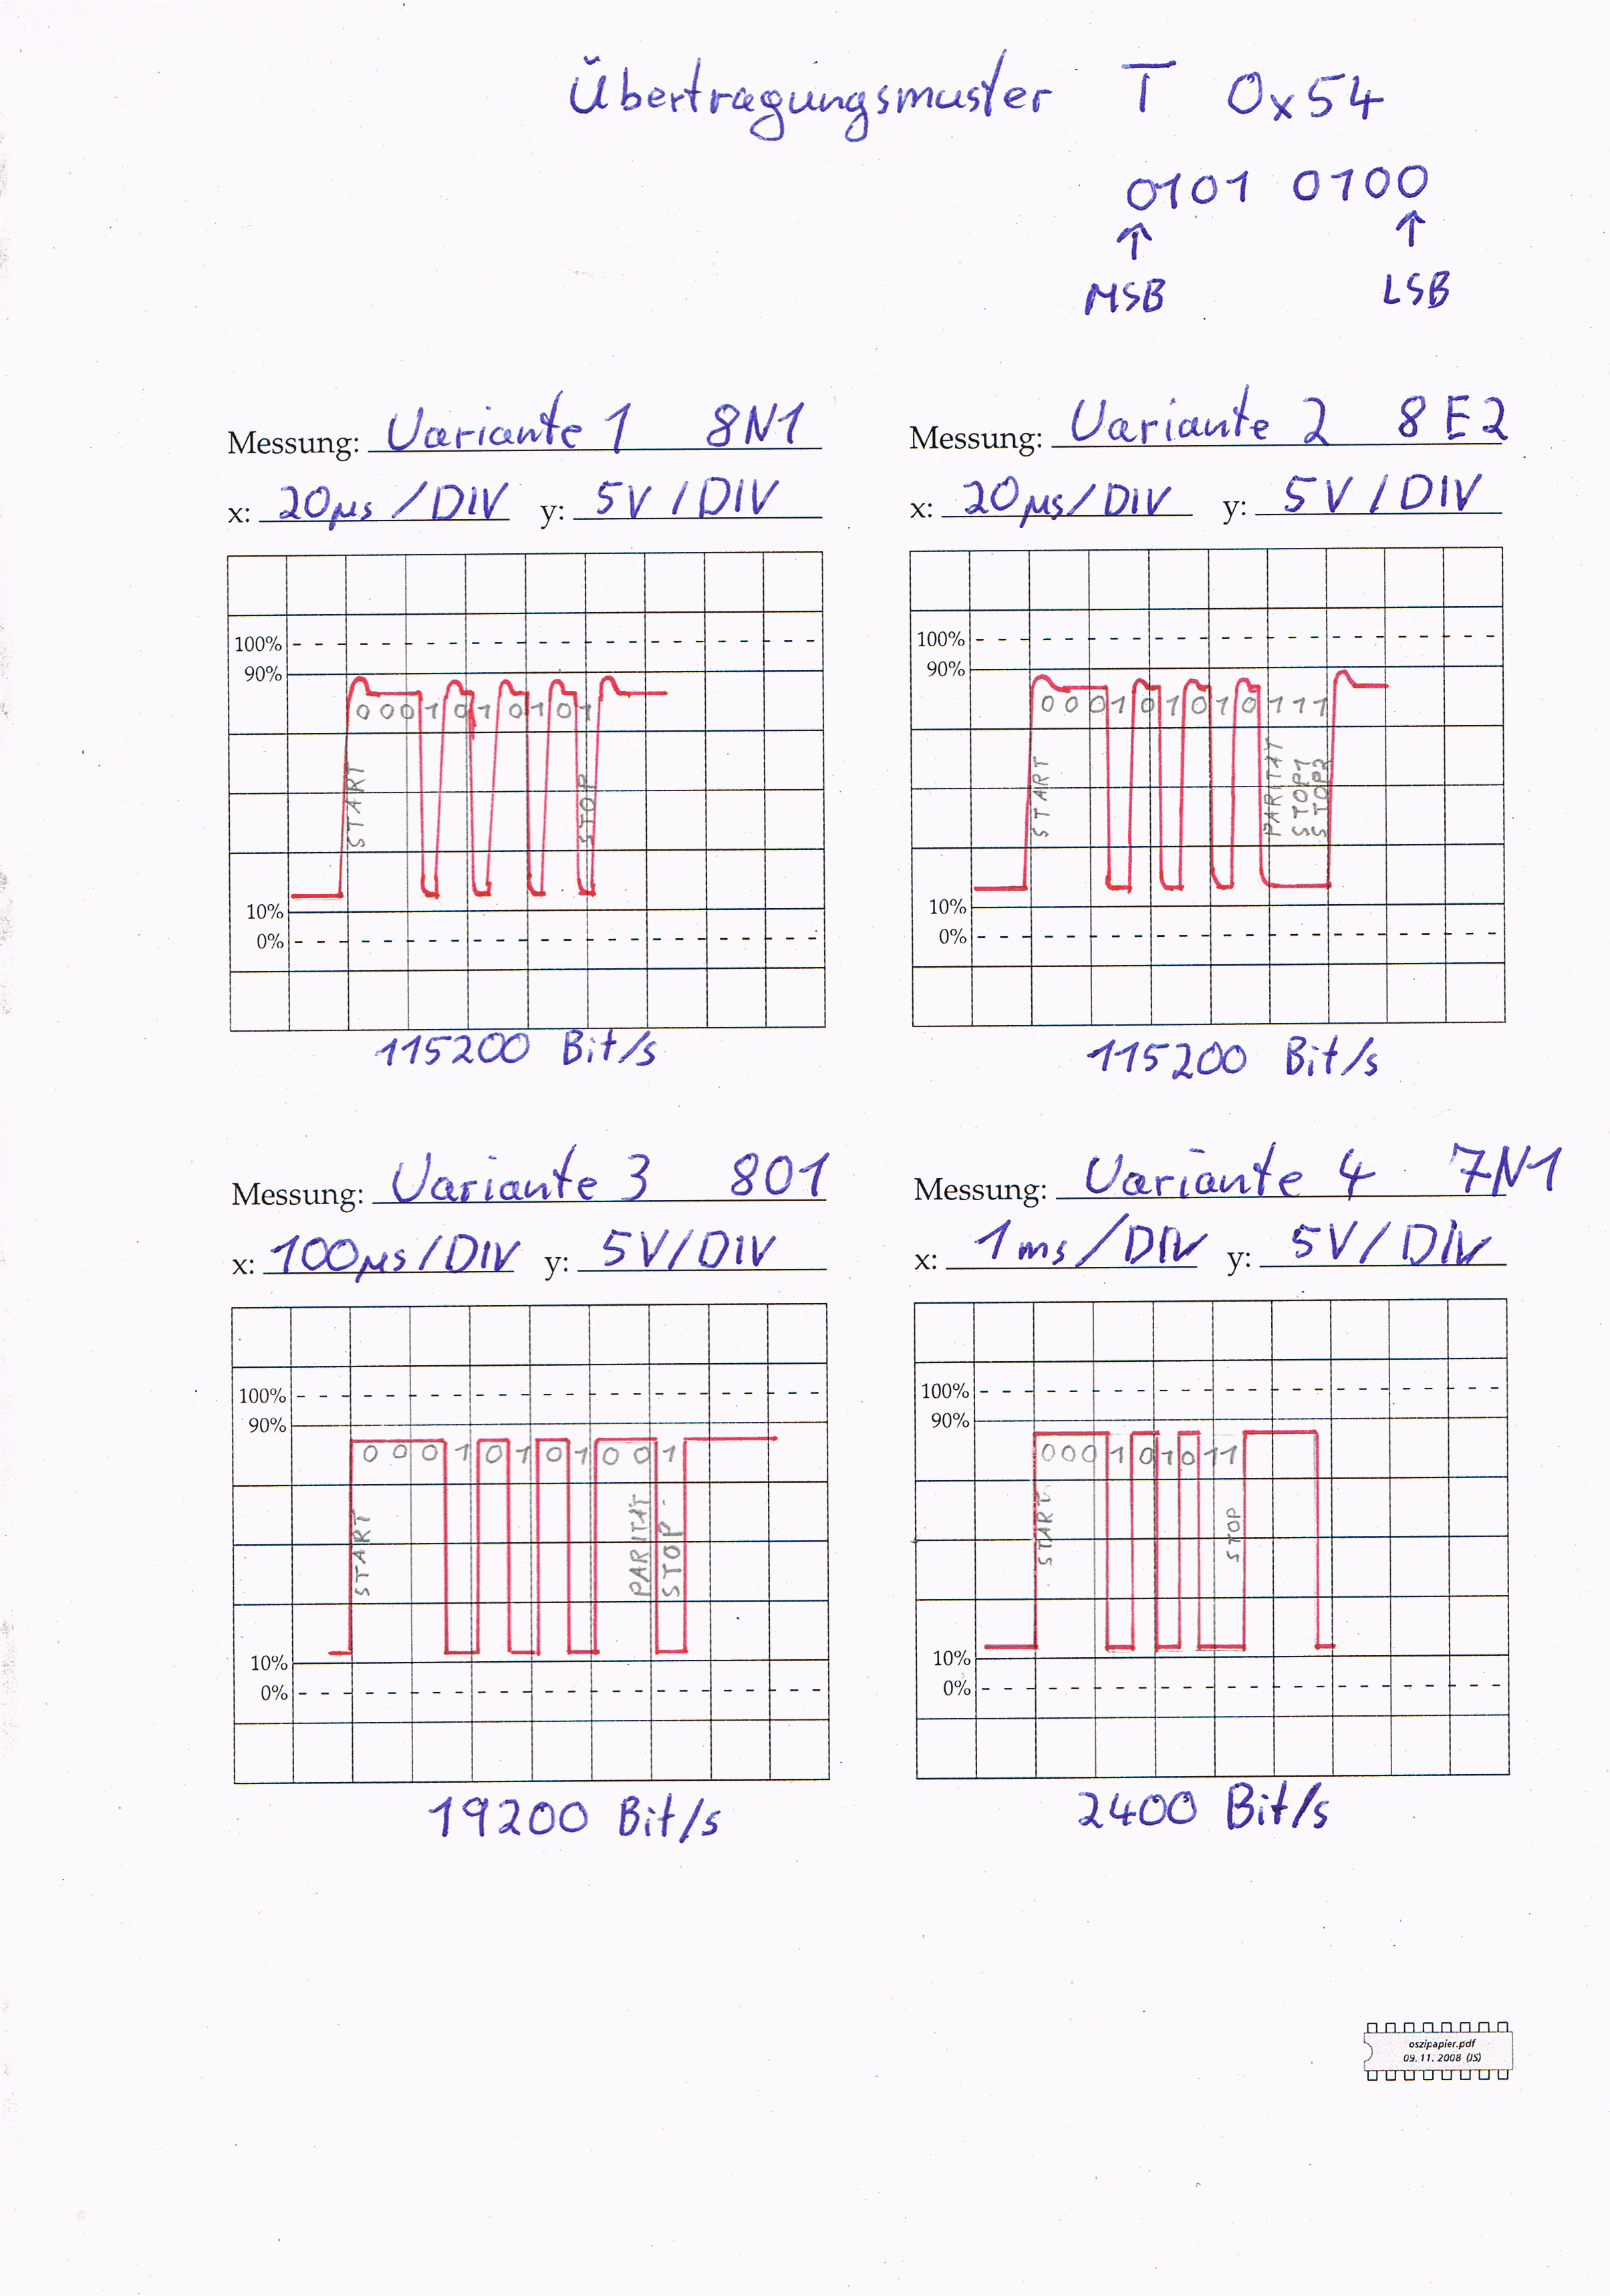 Übertragungsmuster T 0x54
0101 0100
↑ ↑
MSB LSB
Messung: Variante 1 8N1
x: 20µs/DIV y: 5V/DIV
100%
90%
0 0 0 1 0 1 0 1 0 1
START STOP
10%
0%
115200 Bit/s
Messung: Variante 2 8E2
x: 20µs/DIV y: 5V/DIV
100%
90%
0 0 0 1 0 1 0 1 0 1 1 1
START PARITÄT STOP1 STOP2
10%
0%
115200 Bit/s
Messung: Variante 3 8O1
x: 100µs/DIV y: 5V/DIV
100%
90%
0 0 0 1 0 1 0 1 0 0 1
START PARITÄT STOP
10%
0%
19200 Bit/s
Messung: Variante 4 7N1
x: 1ms/DIV y: 5V/DIV
100%
90%
0 0 0 1 0 1 0 1 1
START STOP
10%
0%
2400 Bit/s
oszipapier.pdf
09. 11. 2008 (JS)